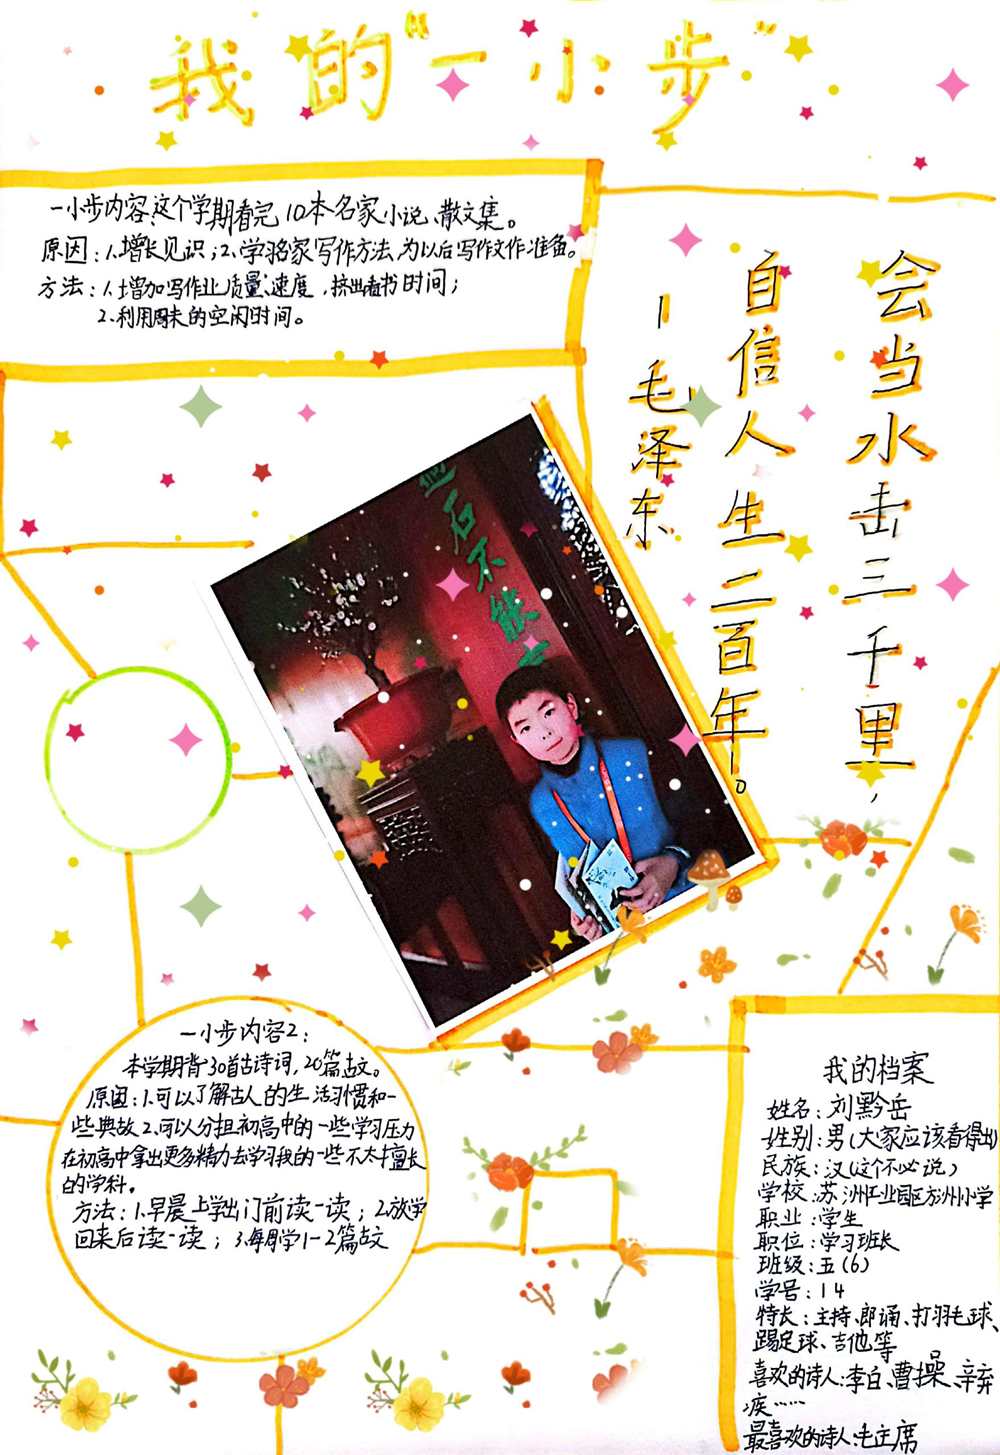 我的“一小步”
一小步内容：这个学期看完10本名家小说、散文集。
原因：1.增长见识；2.学习名家写作方法，为以后写作文作准备。
方法：1.增加写作业质量、速度，挤出看书时间；
2.利用周末的空闲时间。
会当水击三千里，
自信人生二百年。
—毛泽东
石不能
一小步内容2：
本学期背30首古诗词，20篇古文。
原因：1.可以了解古人的生活习惯和一
些典故2.可以分担初高中的一些学习压力
在初高中拿出更多精力去学习我的一些不太擅长
的学科。
方法：1.早晨上学出门前读一读；2.放学
回来后读一读；3.每周学1-2篇古文
我的档案
姓名：刘黔岳
性别：男（大家应该看得出）
民族：汉（这个不必说）
学校：苏州工业园区方洲小学
职业：学生
职位：学习班长
班级：五（6）
学号：14
特长：主持、郎诵、打羽毛球、
踢足球、吉他等
喜欢的诗人：李白、曹操、辛弃
疾……
最喜欢的诗人：毛主席